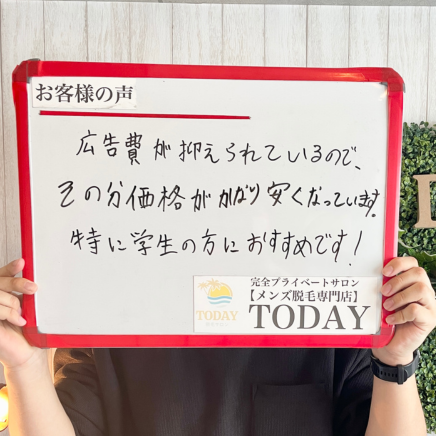 お客様の声
広告費が抑えられているので、
その分価格がかなり安くなっています。
特に学生の方におすすめです!
完全プライベートサロン
【メンズ脱毛専門店】
TODAY
TODAY